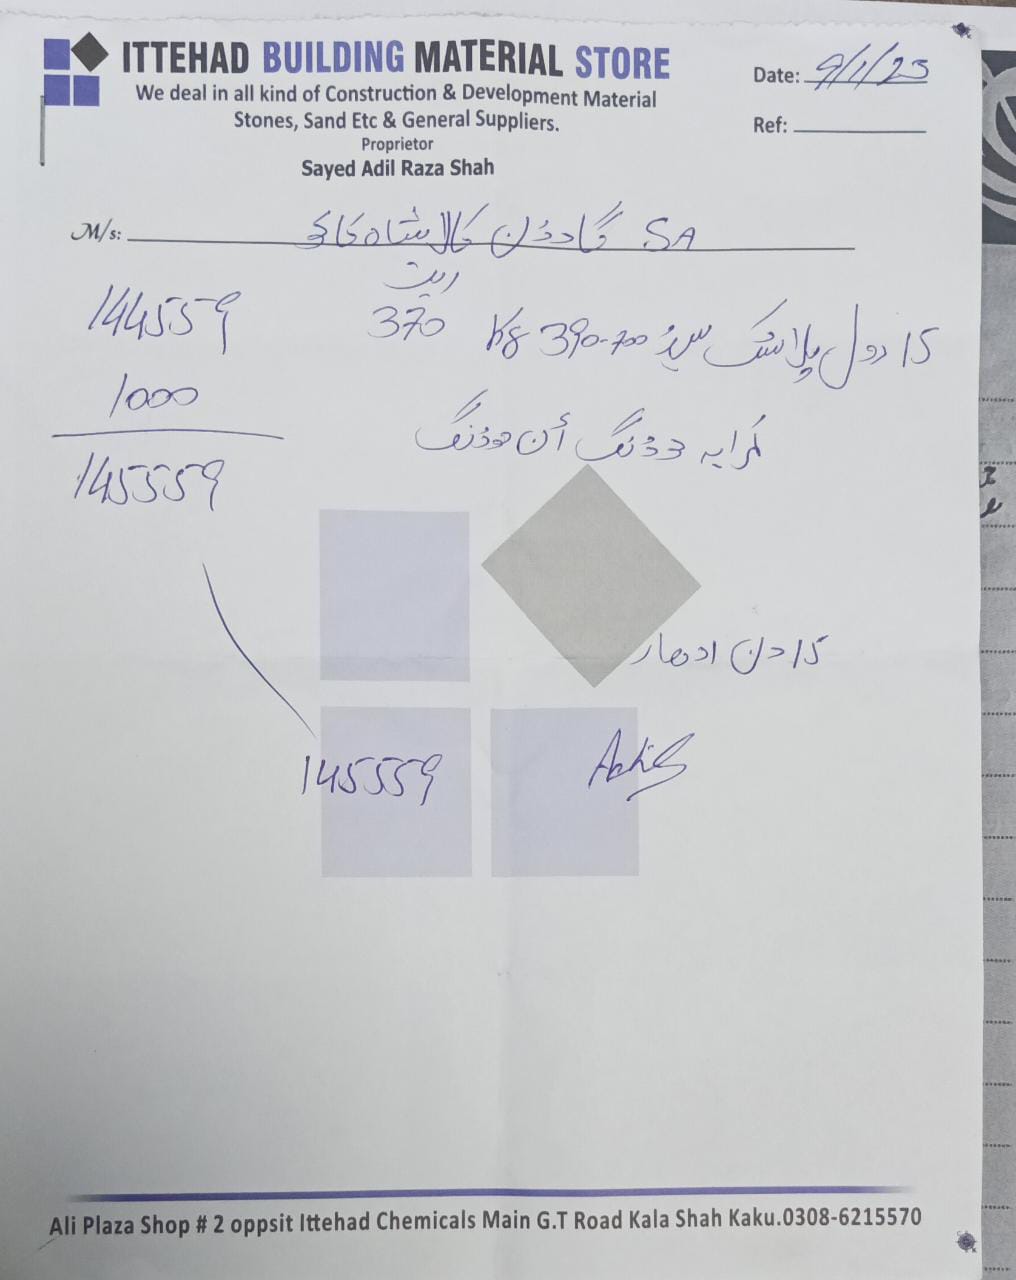 ITTEHAD BUILDING MATERIAL STORE
We deal in all kind of Construction & Development Material
Stones, Sand Etc & General Suppliers.
Proprietor
Sayed Adil Raza Shah
Date: 9/1/23
Ref:
M/s: SA گارڈن کالا شاہ کاکو
ریٹ
15 رول پلاسٹک سیٹ 390-700 Kg 370 144559
کرایہ لوڈنگ أن لوڈنگ 1000
145559
15 دن ادھار
145559
Ali Plaza Shop # 2 oppsit Ittehad Chemicals Main G.T Road Kala Shah Kaku.0308-6215570